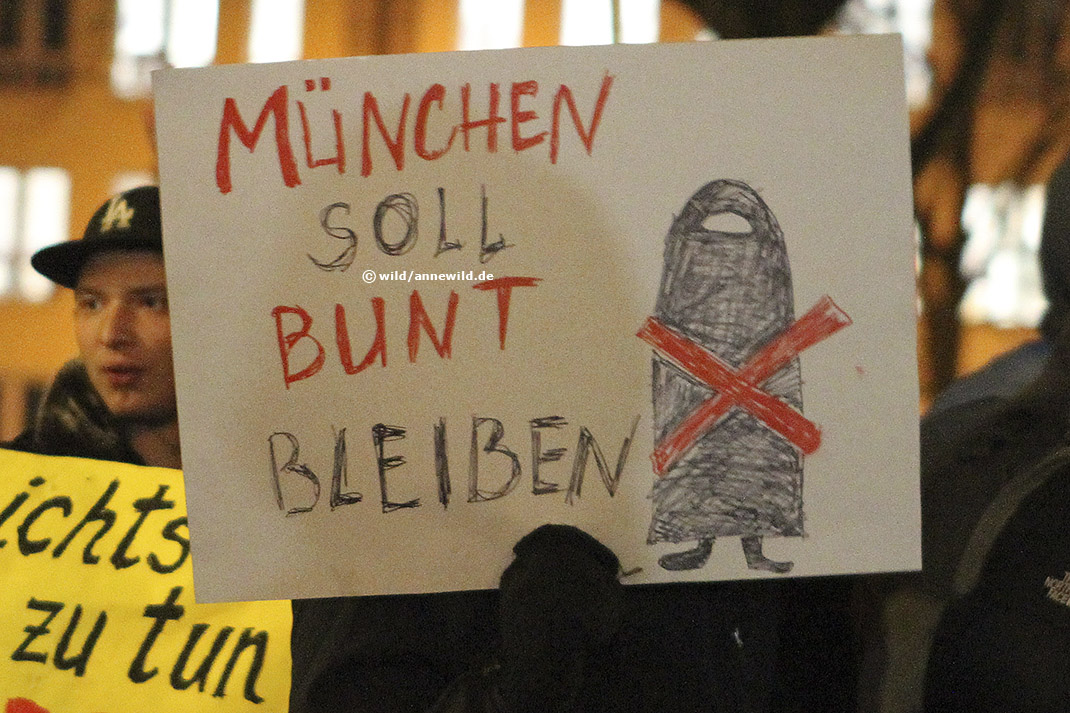 MÜNCHEN
SOLL
© wild/annewild.de
BUNT
BLEIBEN
LA
ichts
zu tun
THE
NORTH
FACE